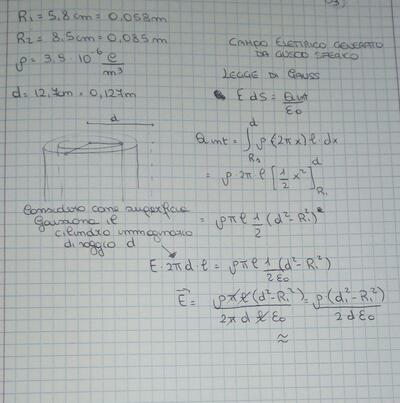 R₁ = 5,8 cm = 0,058 m
R₂ = 8.5 cm = 0,085 m
ρ = 3,5 · 10⁻⁶ C/m³
d = 12,7 cm = 0,127 m
CAMPO ELETTRICO GENERATO
DA GUSCIO SFERICO
LEGGE DI GAUSS
E dS = Qint/ε₀
d
Qint = ∫_{R₁}^{d} ρ (2πx) ℓ · dx
= ρ · 2π ℓ [1/2 x²]_{R₁}^{d}
Considero come superficie
gaussiana il
cilindro immaginario
di raggio d
= ρπℓ 1/2 (d² - R₁²)
E · 2πd · ℓ = ρπℓ 1/2ε₀ (d² - R₁²)
E⃗ = ρπℓ(d² - R₁²)/2πdℓε₀ = ρ(d² - R₁²)/2dε₀
≈